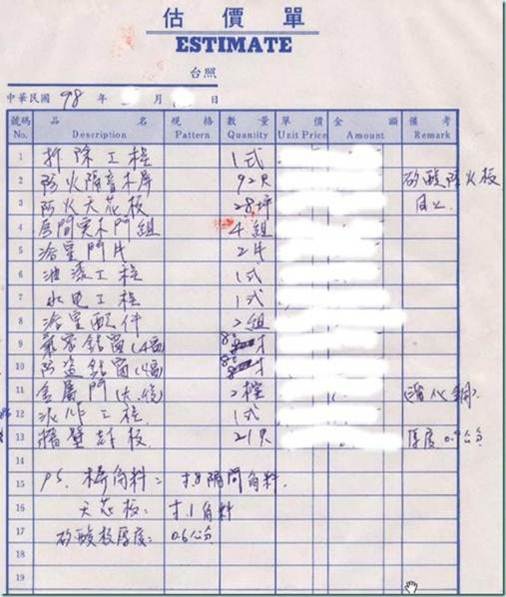 估價單
ESTIMATE
台照
中華民國 98 年 月 日
號碼 品名 規格 數量 單價 金額 備考
No. Description Pattern Quantity Unit Price Amount Remark
1 拆除工程 1式
2 防火隔音木屏 92尺 矽酸防火板
3 防火天花板 28坪 同上
4 房間實木門組 4組
5 浴室門片 2片
6 油漆工程 1式
7 水电工程 1式
8 浴室配件 2組
9 氣密鋁窗(4窗) 才
10 防盜鋁窗(4窗) 才
11 金属門 2樘
12 泥作工程 1式
13 牆壁封板 21尺 厚度 公分
14
15 PS. 角料: 隔間角料.
16 天花板: 角料
17 矽酸板厚度: 0.6公分
18
19